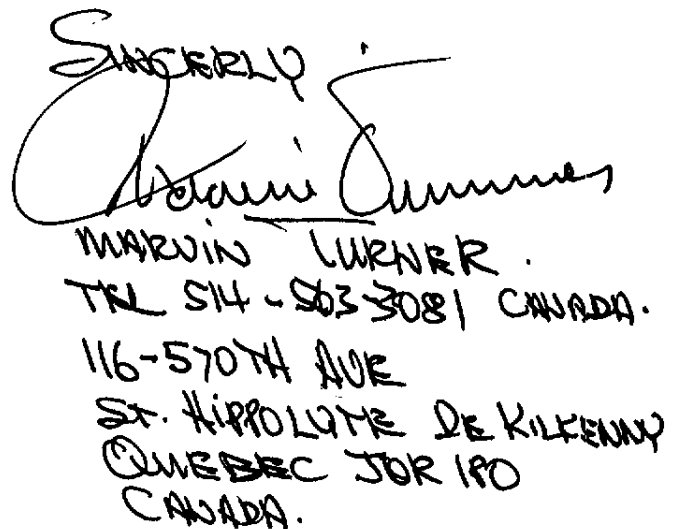 SINCERLY
MARVIN TURNER.
TEL 514-563-3081 CANADA.
116-570TH AVE
ST. HIPPOLYTE DE KILKENNY
QUEBEC JOR 1PO
CANADA.